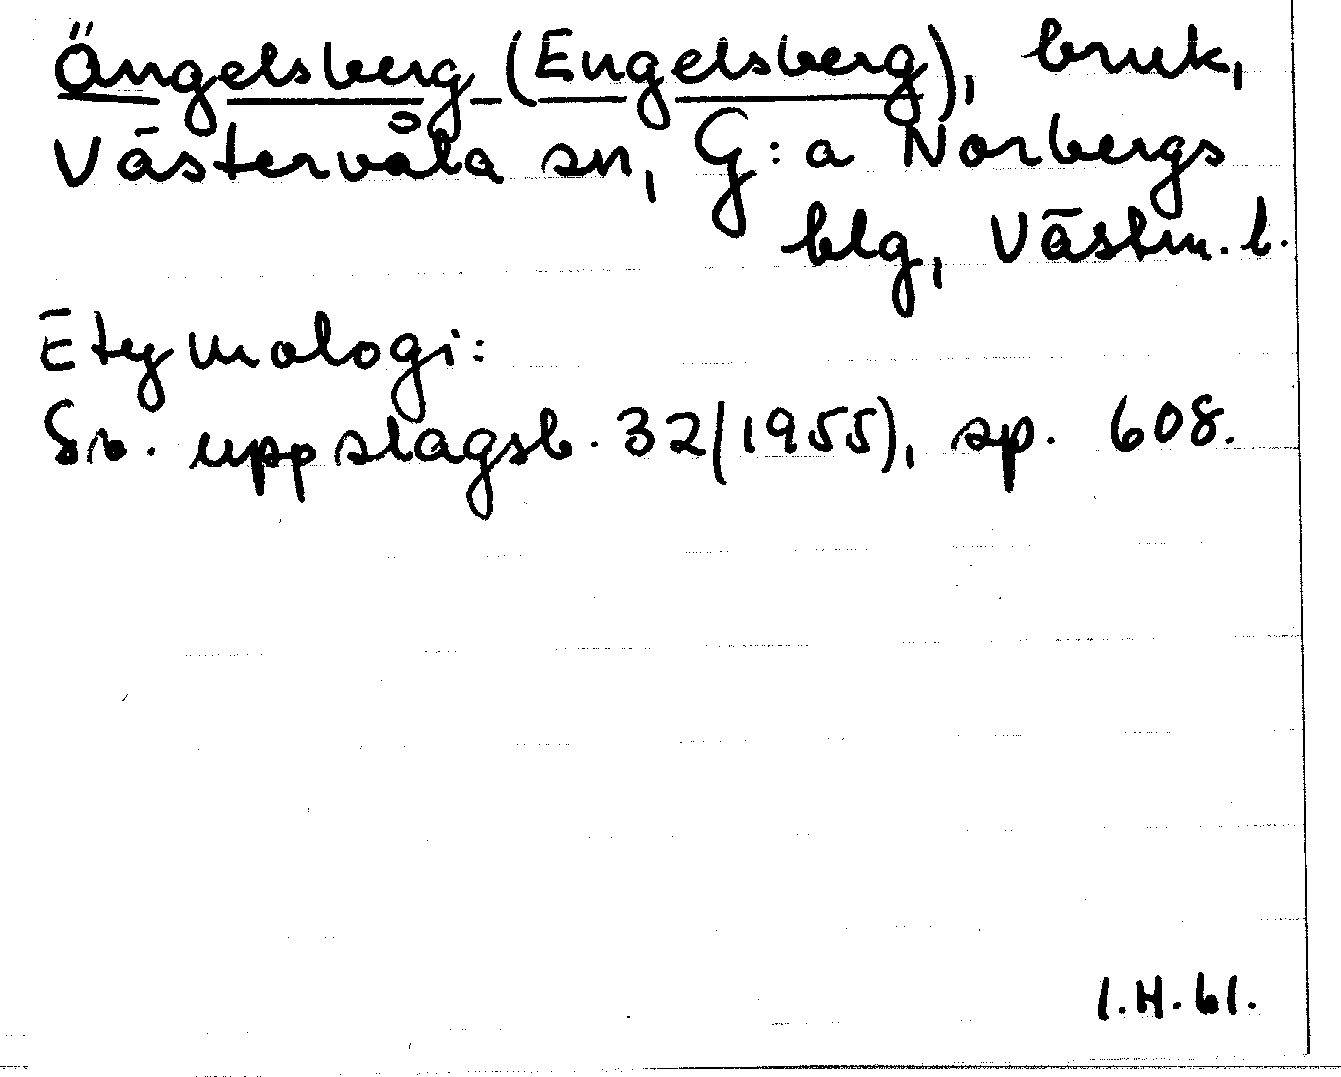 Ängelsberg (Engelsberg), bruk,
Västervåla sn, G:a Norbergs
blg, Västm. l.
Etymologi:
Sv. uppslagsb. 32(1955), sp. 608.
I.H.61.